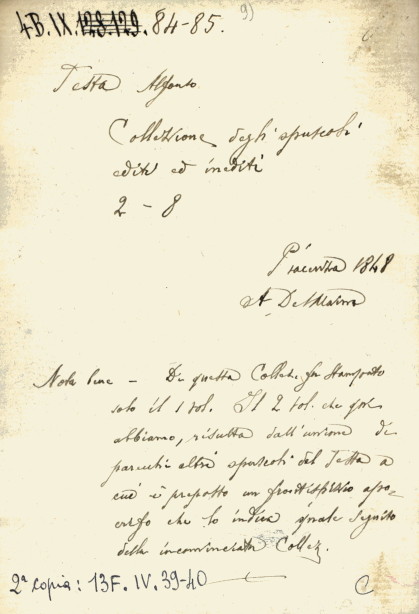 4B.IX.128.129.84-85.
9)
Testa Alfonso
Collezione degli opuscoli
editi ed inediti
2 - 8
Piacenza 1848
A. Del Maino
Nota bene - Di questa Collez. fu stampato
solo il 1 vol. Il 2 vol. che qui
abbiamo, risulta dall'unione di
parecchi altri opuscoli del Testa a
cui è preposto un frontispizio apo-
crifo che lo indica quale seguito
della incominciata Collez.
2ª copia: 13F.IV.39-40
C